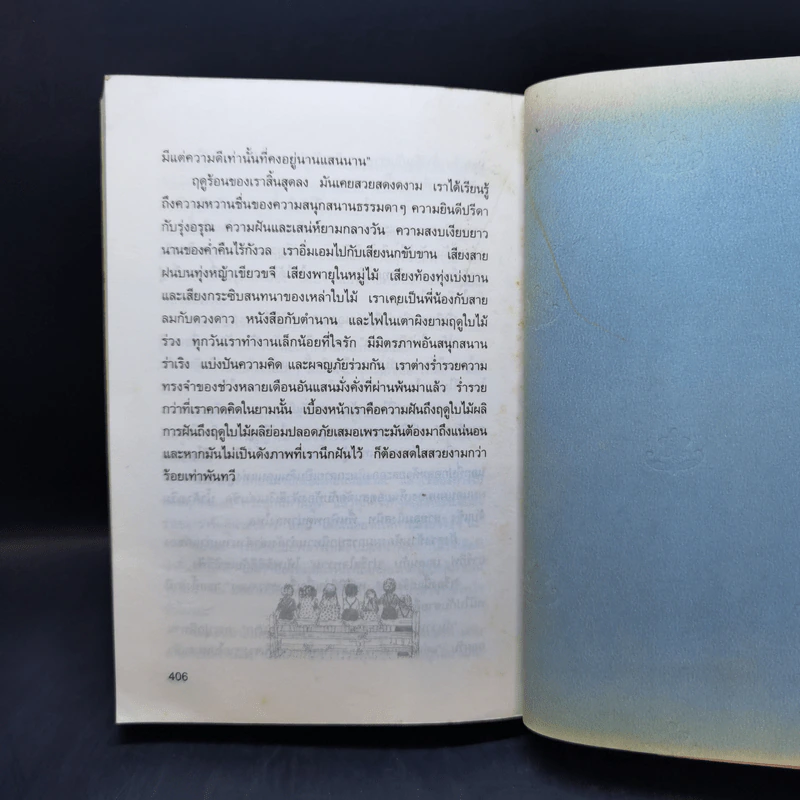 มีแต่ความดีเท่านั้นที่คงอยู่นานแสนนาน"
ฤดูร้อนของเราสิ้นสุดลง มันเคยสวยสดงดงาม เราได้เรียนรู้
ถึงความหวานชื่นของความสนุกสนานธรรมดาๆ ความยินดีปรีดา
กับรุ่งอรุณ ความฝันและเสน่ห์ยามกลางวัน ความสงบเงียบยาว
นานของค่ำคืนไร้กังวล เราอิ่มเอมไปกับเสียงนกขับขาน เสียงสาย
ฝนบนทุ่งหญ้าเขียวขจี เสียงพายุในหมู่ไม้ เสียงท้องทุ่งเบ่งบาน
และเสียงกระซิบสนทนาของเหล่าใบไม้ เราเคยเป็นพี่น้องกับสาย
ลมกับดวงดาว หนังสือกับตำนาน และไฟในเตาผิงยามฤดูใบไม้
ร่วง ทุกวันเราทำงานเล็กน้อยที่ใจรัก มีมิตรภาพอันสนุกสนาน
ร่าเริง แบ่งปันความคิด และผจญภัยร่วมกัน เราต่างร่ำรวยความ
ทรงจำของช่วงหลายเดือนอันแสนมั่งคั่งที่ผ่านพ้นมาแล้ว ร่ำรวย
กว่าที่เราคาดคิดในยามนั้น เบื้องหน้าเราคือความฝันถึงฤดูใบไม้ผลิ
การฝันถึงฤดูใบไม้ผลิย่อมปลอดภัยเสมอเพราะมันต้องมาถึงแน่นอน
และหากมันไม่เป็นดังภาพที่เรานึกฝันไว้ ก็ต้องสดใสสวยงามกว่า
ร้อยเท่าพันทวี
406